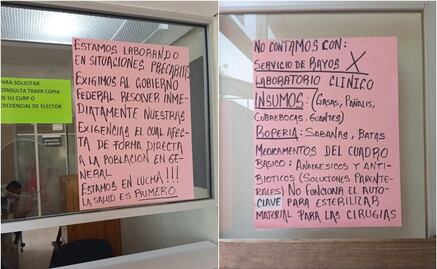 ESTAMOS LABORANDO
EN SITUACIONES PRECARIAS
EXIGIMOS AL GOBIERNO
FEDERAL RESOLVER INME-
DIATAMENTE NUESTRAS
EXIGENCIAS EL CUAL AFEC-
TA DE FORMA DIRECTA
A LA POBLACIÓN EN GE-
NERAL
ESTAMOS EN LUCHA!!!
LA SALUD ES PRIMERO
PARA SOLICITAR
CONSULTA TRAER COPIA
DE SU CURP O
CREDENCIAL DE ELECTOR
NO CONTAMOS CON:
SERVICIO DE RAYOS X
LABORATORIO CLINICO
INSUMOS: (GASAS, PAÑALES,
CUBREBOCAS, GUANTES)
ROPERIA: SABANAS, BATAS
MEDICAMENTOS DEL CUADRO
BASICO: ANALGESICOS Y ANTI-
BIOTICOS (SOLUCIONES PARENTE-
RALES) NO FUNCIONA EL AUTO-
CLAVE PARA ESTERILIZAR
MATERIAL PARA LAS CIRUGIAS